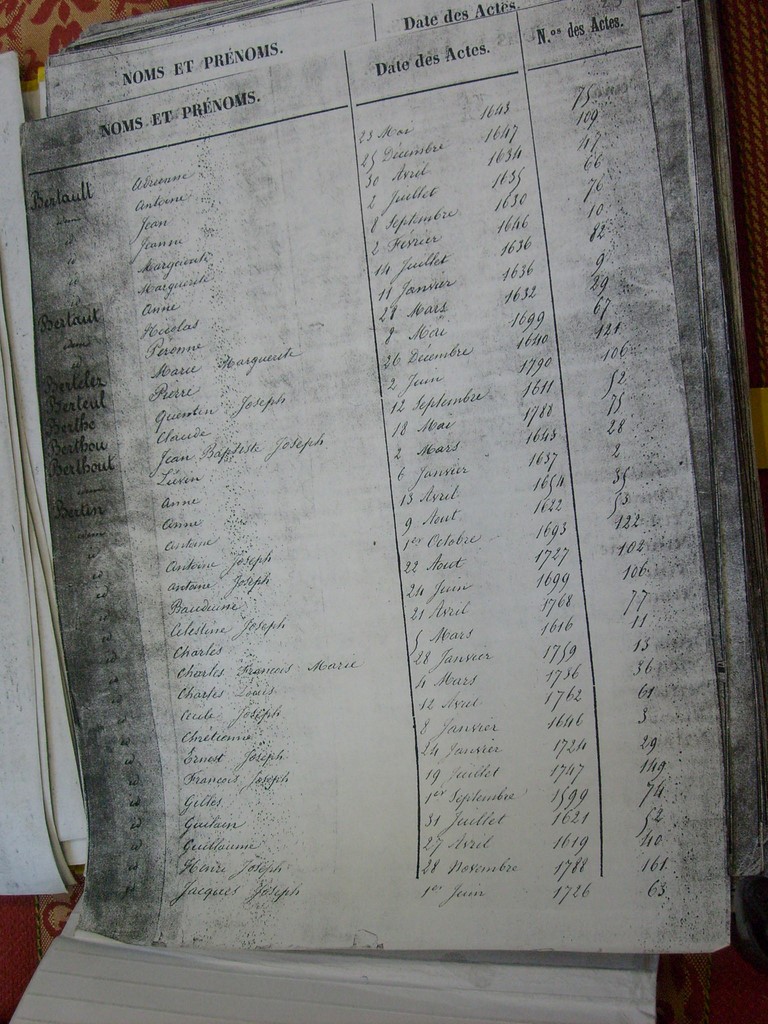 Date des Actes.
NOMS ET PRÉNOMS.
NOMS ET PRÉNOMS. Date des Actes. N.os des Actes.
Bertault Adrienne 23 Mai 1643 75
idem Antoine 25 Décembre 1647 109
id Jean 30 Avril 1634 47
id Jeanne 2 Juillet 1635 66
id Marguerite 8 Septembre 1630 76
id Marguerite 2 Fevrier 1646 10
Bertaut Anne 14 Juillet 1636 82
idem Nicolas 11 Janvier 1636 9
id Péronne 28 Mars 1632 29
Bertelez Marie Marguerite 8 Mai 1699 67
Berteul Pierre 26 Décembre 1640 121
Berthe Quentin Joseph 2 Juin 1790 106
Berthou Claude 12 Septembre 1611 52
Berthout Jean Baptiste Joseph 18 Mai 1788 75
idem Liévin 2 Mars 1643 28
Bertin Anne 6 Janvier 1637 2
idem Anne 13 Avril 1654 35
id Antoine 9 Aout 1622 53
id Antoine Joseph 1er Octobre 1693 122
id Antoine Joseph 22 Aout 1727 102
id Bauduine 24 Juin 1699 106
id Célestine Joseph 21 Avril 1768 77
id Charles 5 Mars 1616 11
id Charles François Marie 28 Janvier 1759 13
id Charles Louis 4 Mars 1736 36
id Cecile Joseph 12 Avril 1762 61
id Chrétienne 8 Janvier 1646 3
id Ernest Joseph 24 Janvier 1724 29
id François Joseph 19 Juillet 1747 149
id Gilles 1er Septembre 1599 74
id Guilain 31 Juillet 1621 52
id Guillaume 27 Avril 1619 40
id Henri Joseph 28 Novembre 1788 161
id Jacques Joseph 1er Juin 1726 63